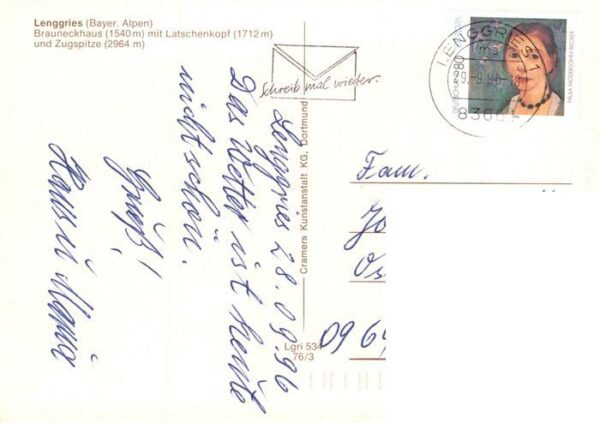 Lenggries (Bayer. Alpen)
Brauneckhaus (1540 m) mit Latschenkopf (1712 m)
und Zugspitze (2964 m)
Schreib mal wieder.
LENGGRIES 1
8366
DEUTSCHLAND
PAULA MODERSOHN-BECKER
Lenggries 28.09.96
Das Wetter ist heute
nicht schön.
Gruß!
Cramers Kunstanstalt KG, Dortmund
Lgri 534
76/3
Fam.
Jo
Os
09 6